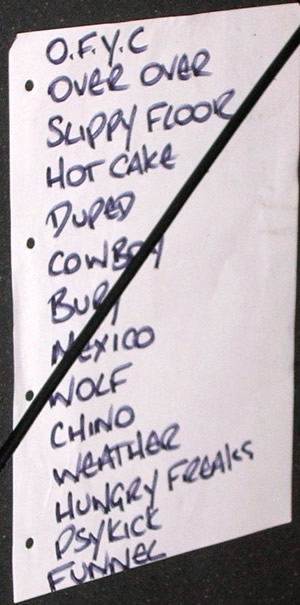 O.F.Y.C
OVER OVER
SLIPPY FLOOR
HOT CAKE
DUPED
COWBOY
BURY
MEXICO
WOLF
CHINO
WEATHER
HUNGRY FREAKS
PSYKICK
FUNNEL